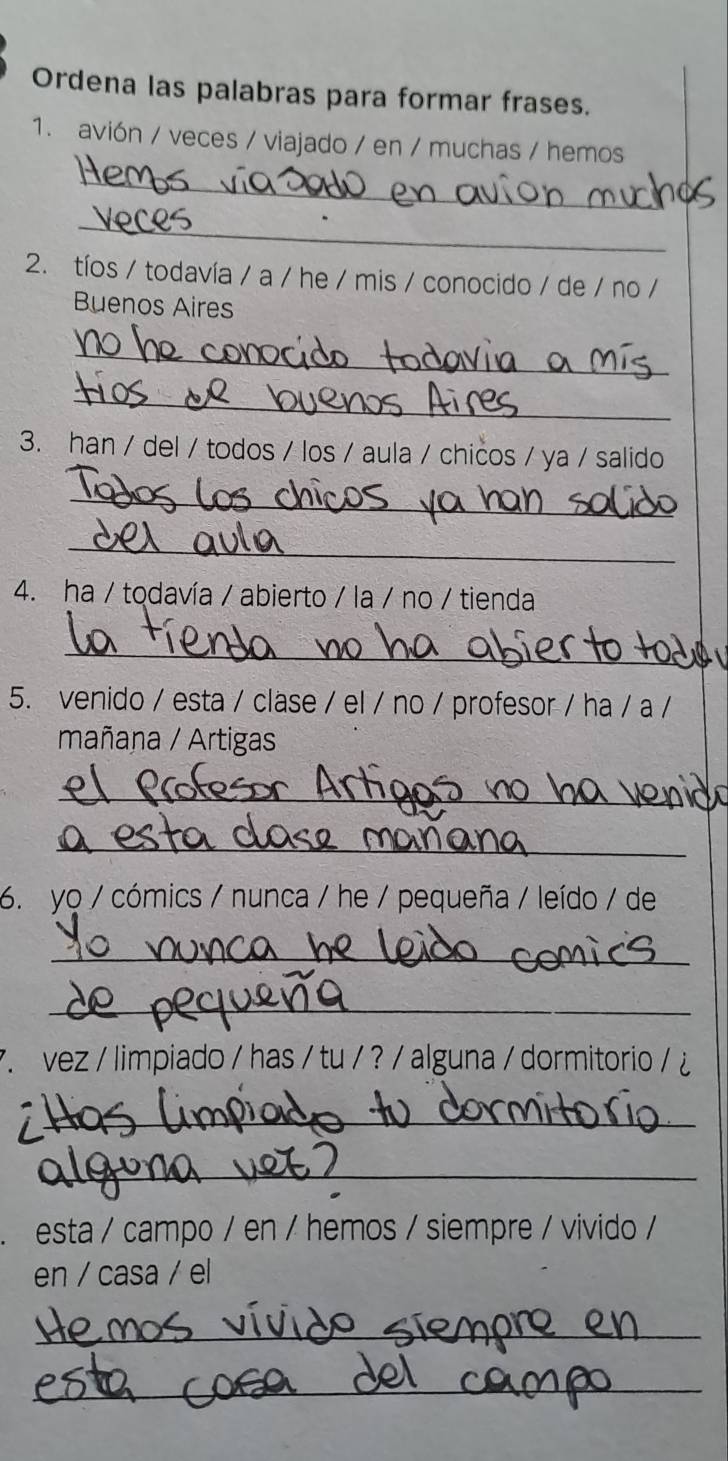 Ordena las palabras para formar frases.
1. avión / veces / viajado / en / muchas / hemos
Hemos viajado en avion muchas
veces
2. tíos / todavía / a / he / mis / conocido / de / no /
Buenos Aires
no he conocido todavia a mis
tios de buenos Aires
3. han / del / todos / los / aula / chicos / ya / salido
Todos los chicos ya han salido
del aula
4. ha / todavía / abierto / la / no / tienda
la tienda no ha abierto todav
5. venido / esta / clase / el / no / profesor / ha / a /
mañana / Artigas
el profesor Artigas no ha venido
a esta clase mañana
6. yo / cómics / nunca / he / pequeña / leído / de
Yo nunca he leido comics
de pequeña
7. vez / limpiado / has / tu / ? / alguna / dormitorio / ¿
¿Has limpiado tu dormitorio
alguna vez?
. esta / campo / en / hemos / siempre / vivido /
en / casa / el
Hemos vivido siempre en
esta casa del campo